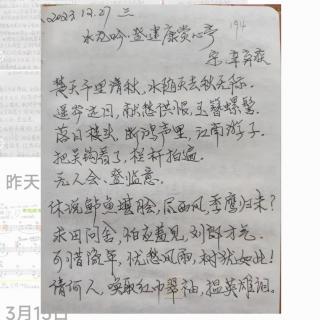 2023.12.27 三
水龙吟·登建康赏心亭 194
宋 辛弃疾
楚天千里清秋,水随天去秋无际。
遥岑远目,献愁供恨,玉簪螺髻。
落日楼头,断鸿声里,江南游子。
把吴钩看了,栏杆拍遍。
无人会、登临意。
休说鲈鱼堪脍,尽西风,季鹰归来?
求田问舍,怕应羞见,刘郎才气。
可惜流年,忧愁风雨,树犹如此!
倩何人,唤取红巾翠袖,揾英雄泪。
昨天
3月15日